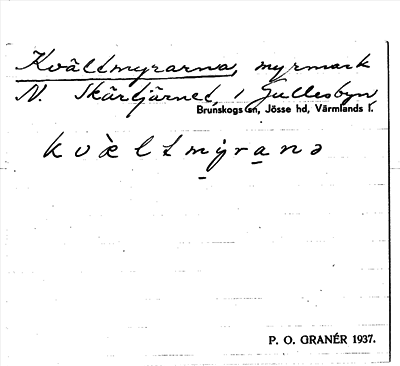 Kvältmyrarna, myrmark
N. Skärtjärnet, i Gullesbyn,
Brunskogs sn, Jösse hd, Värmlands l.
kvæltmýranə
P. O. GRANÉR 1937.